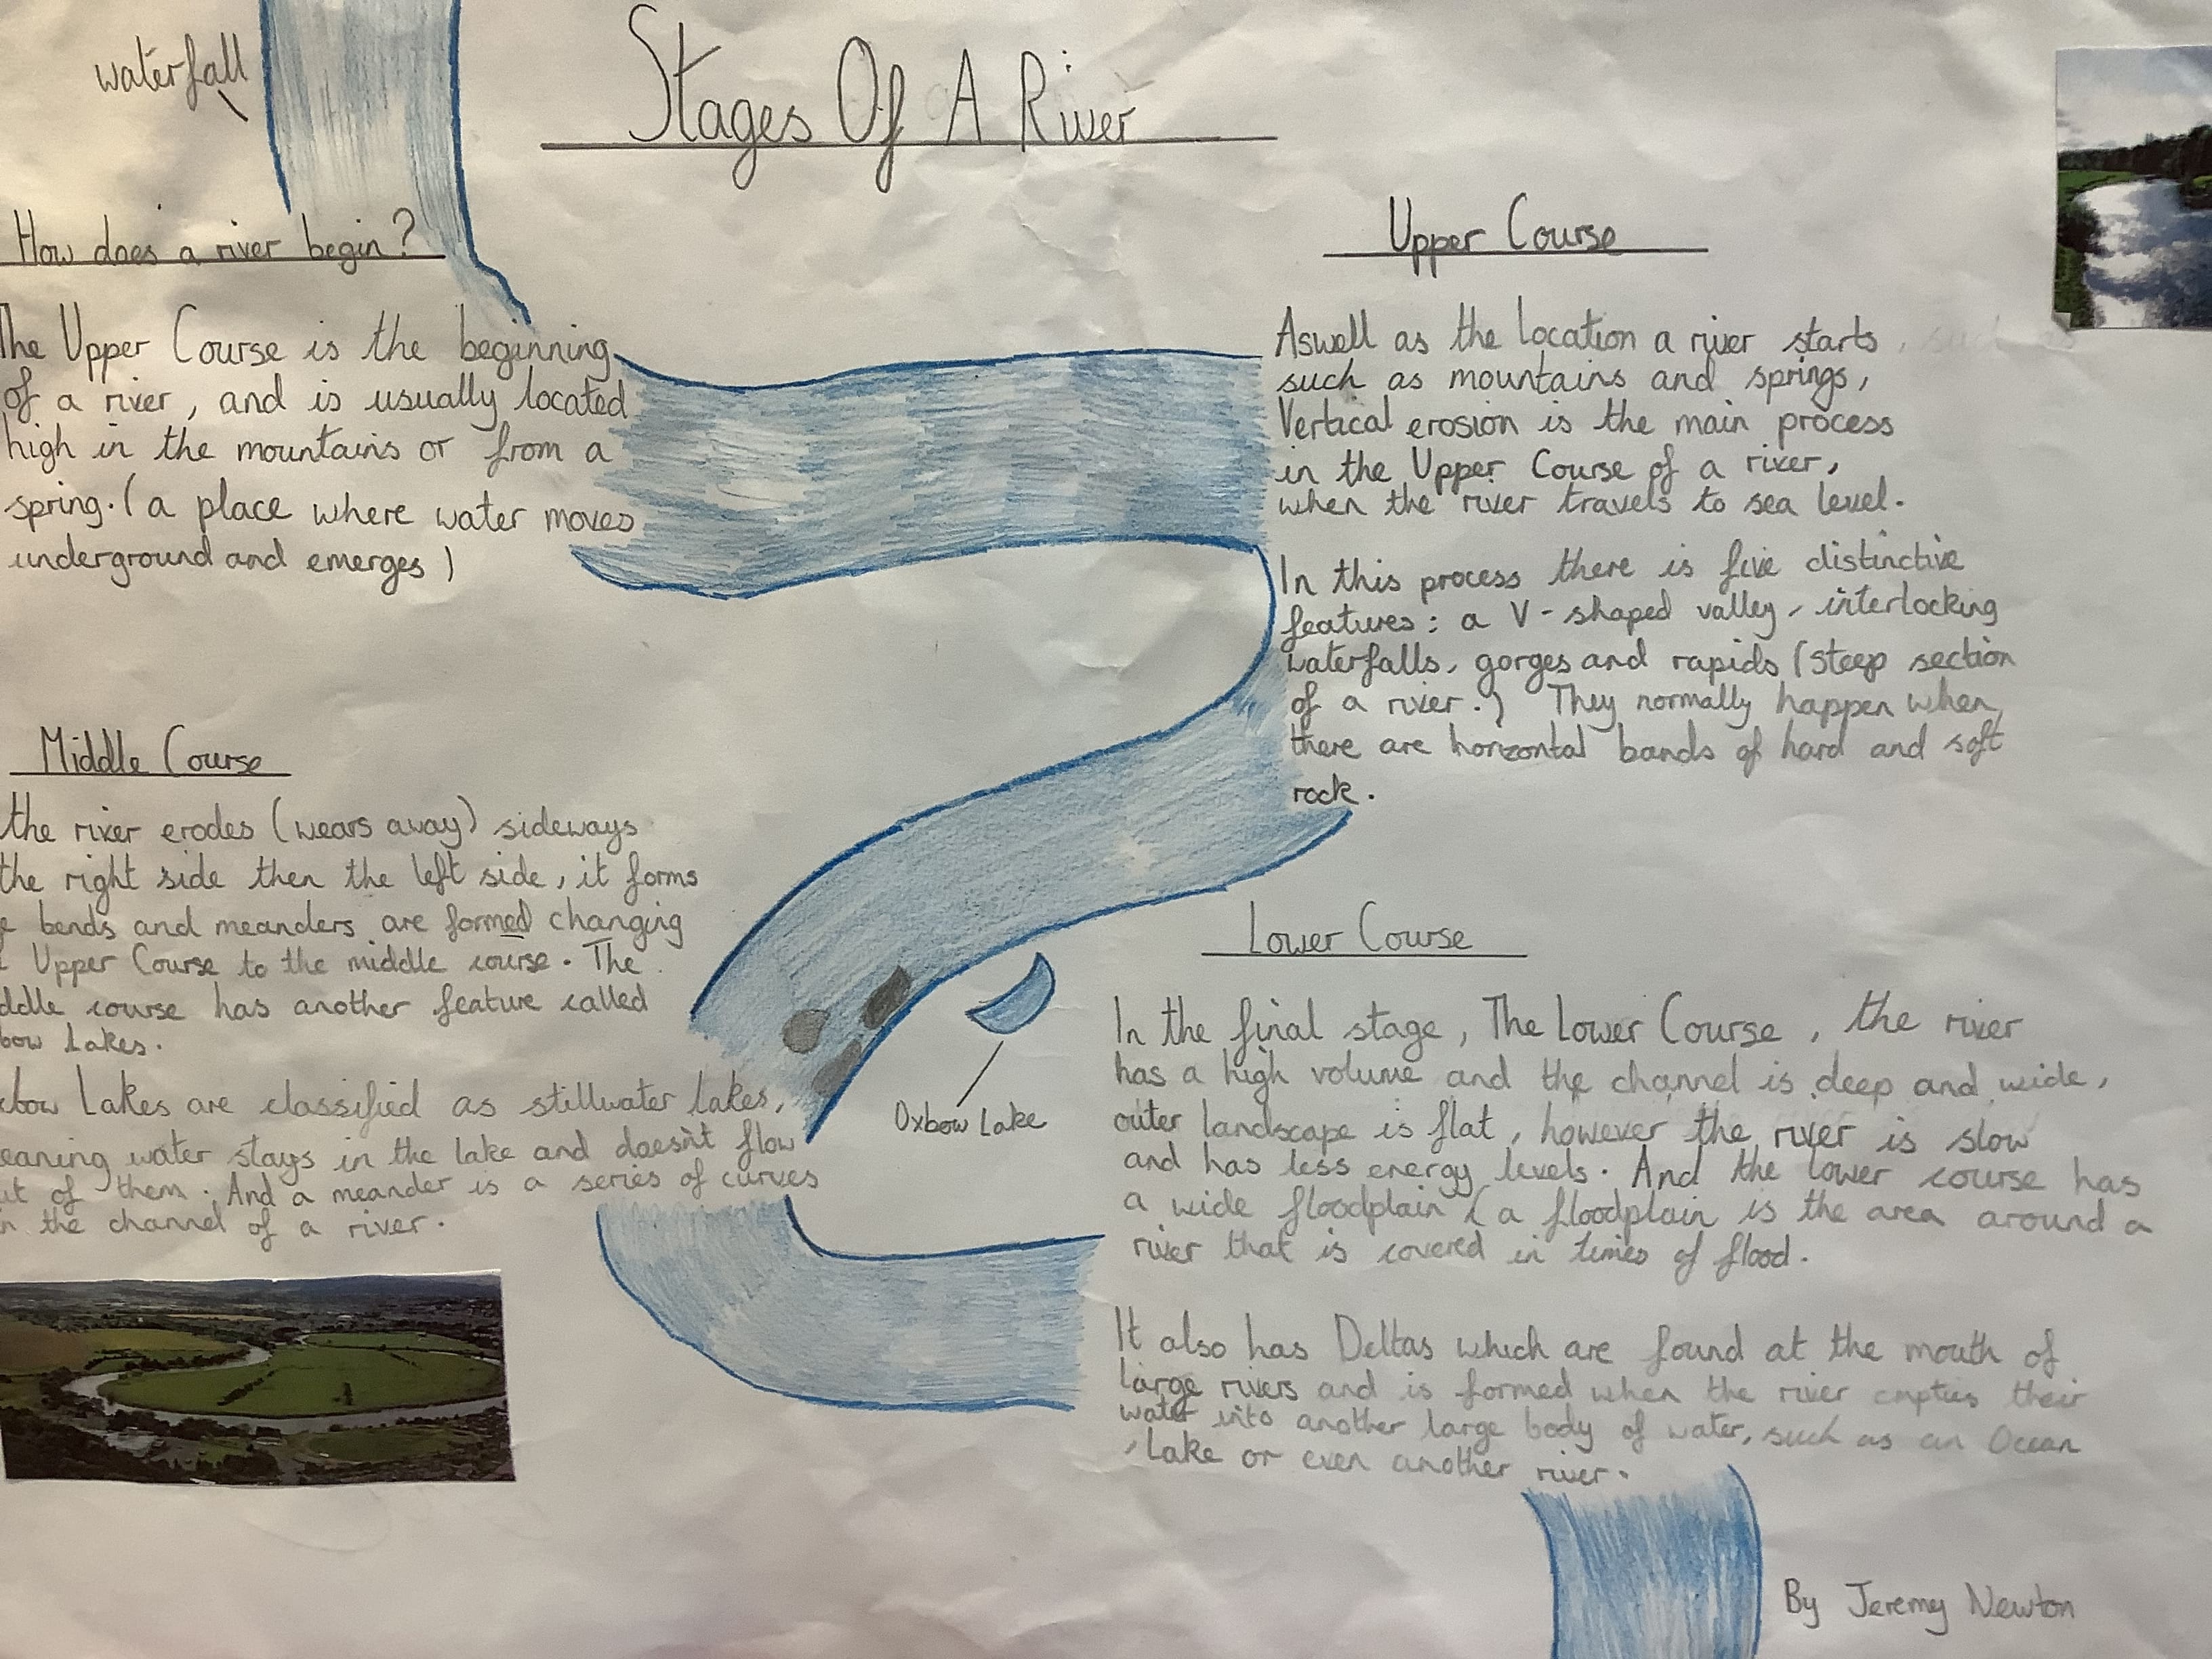 waterfall
Stages Of A River
How does a river begin?
The Upper Course is the beginning
of a river, and is usually located
high in the mountains or from a
spring. (a place where water moves
underground and emerges)
Upper Course
Aswell as the location a river starts, such as
such as mountains and springs,
Vertical erosion is the main process
in the Upper Course of a river,
when the river travels to sea level.
In this process there is five distinctive
features: a V-shaped valley, interlocking
waterfalls, gorges and rapids (steep section
of a river.) They normally happen when
there are horizontal bands of hard and soft
rock.
Middle Course
the river erodes (wears away) sideways
the right side then the left side, it forms
bends and meanders are formed changing
Upper Course to the middle course. The
ddle course has another feature called
bow Lakes.
xbow Lakes are classified as stillwater lakes,
eaning water stays in the lake and doesn't flow
ut of them. And a meander is a series of curves
n the channel of a river.
Oxbow Lake
Lower Course
In the final stage, The Lower Course, the river
has a high volume and the channel is deep and wide,
outer landscape is flat, however the river is slow
and has less energy levels. And the lower course has
a wide floodplain (a floodplain is the area around a
river that is covered in times of flood.
It also has Deltas which are found at the mouth of
large rivers and is formed when the river empties their
water into another large body of water, such as an Ocean
, Lake or even another river.
By Jeremy Newton